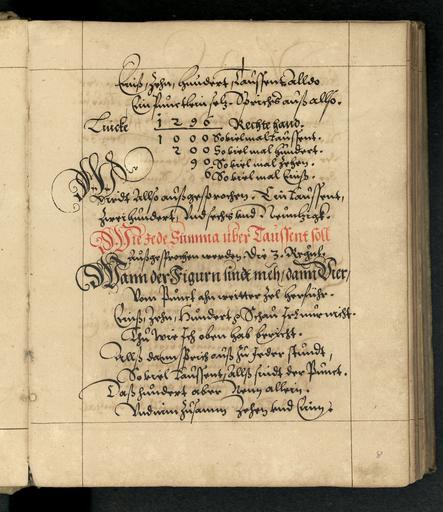 Einß, Zehn, Hundert, Taussent, alldo
Ein Punctlein setz. Sprichs auß allso.
Lincke 1 2 9 6 Rechte hand.
1 0 0 0 So viel mal taussent.
2 0 0 So viel mal hundert.
9 0. So viel mal zehen.
6 So viel mal Einß.
Wirdt Allso außgesprochen. Ein Taussent,
Zweihundert, Vnd sechs vnd Neuntzigk.
Wie Jede Summa über Taussent soll
Außgesprochen werden. Die 3. Regul.
Wann der Figurn sindt meh, dann Vier,
Vom Punct ahn weitter zel herführ.
Einß, Zehn, Hundert, Schau Irr nur nicht.
Thu wie Ich oben hab bericht.
Allß dann sprich auß zu Jeder stundt,
So viel Taussent, Allß sindt der Punct.
Daß hundert aber Nenn allein.
Vnd nim zusamn Zehen vnd Ein.
8